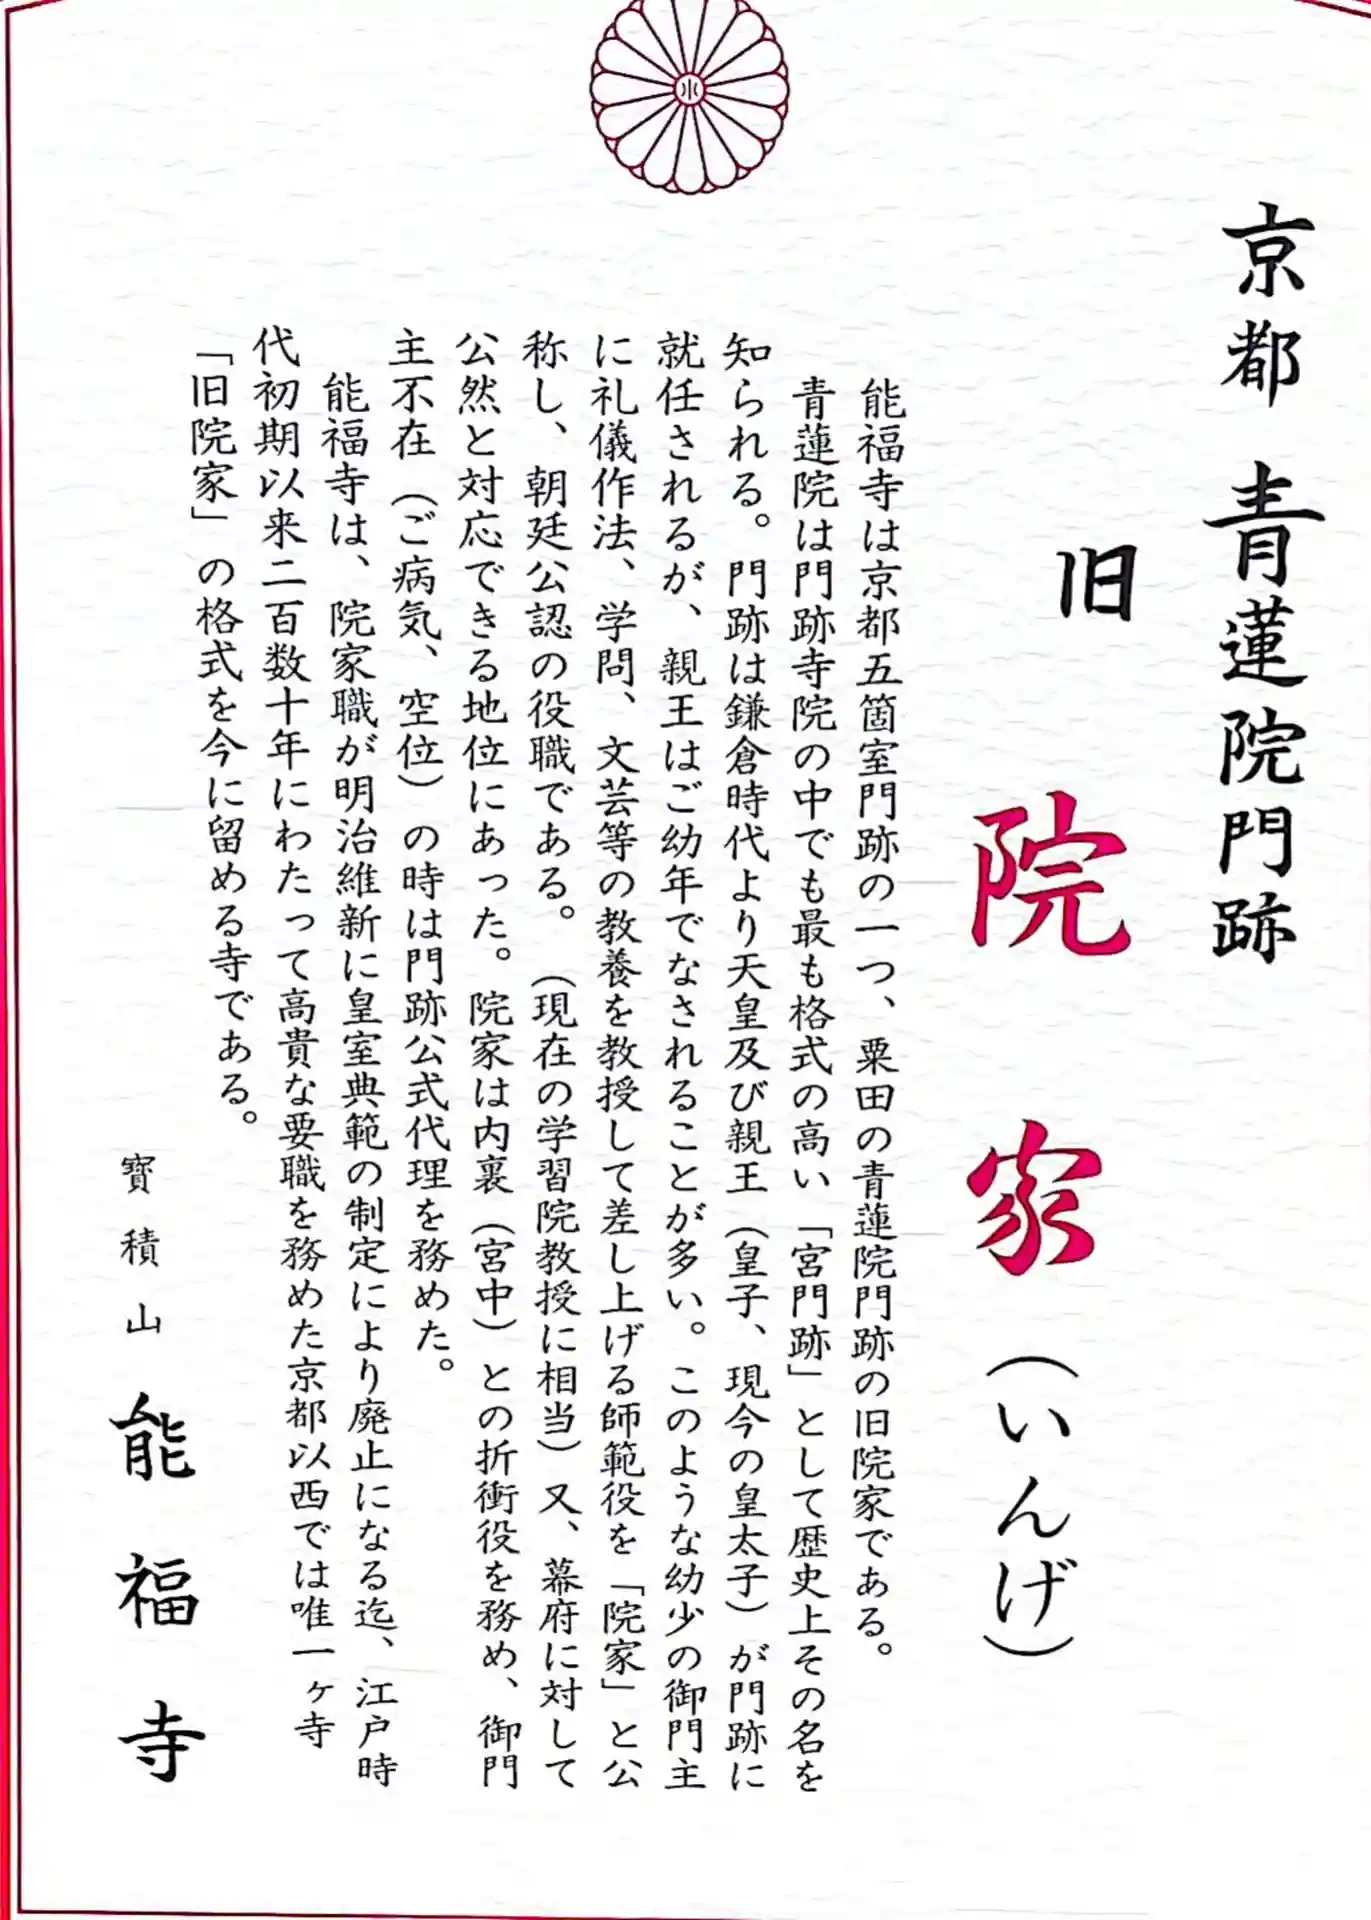 京都 青蓮院門跡
旧
院家（いんげ）
能福寺は京都五箇室門跡の一つ、粟田の青蓮院門跡の旧院家である。
青蓮院は門跡寺院の中でも最も格式の高い「宮門跡」として歴史上その名を
知られる。門跡は鎌倉時代より天皇及び親王（皇子、現今の皇太子）が門跡に
就任されるが、親王はご幼年でなされることが多い。このような幼少の御門主
に礼儀作法、学問、文芸等の教養を教授して差し上げる師範役を「院家」と公
称し、朝廷公認の役職である。（現在の学習院教授に相当）又、幕府に対して
公然と対応できる地位にあった。院家は内裏（宮中）との折衝役を務め、御門
主不在（ご病気、空位）の時は門跡公式代理を務めた。
能福寺は、院家職が明治維新に皇室典範の制定により廃止になる迄、江戸時
代初期以来二百数十年にわたって高貴な要職を務めた京都以西では唯一ヶ寺
「旧院家」の格式を今に留める寺である。
寶積山 能福寺